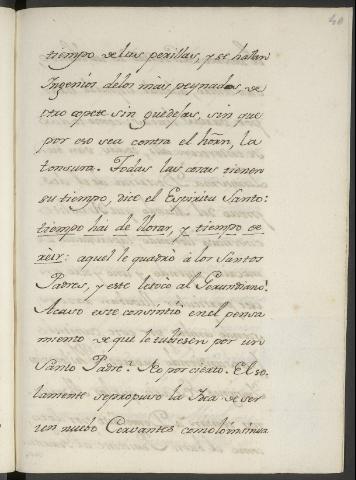 40
tiempo de las perillas, y se hallan
Ingenios delos mas peynados, de
otro copete sin guedejas, sin que
por eso sea contra el hōrn, la
tonsura. Todas las cosas tienen
su tiempo, dice el Espiritu Santo:
tiempo hai de llorar, y tiempo de
reir: aquel le quadró à los Santos
Padres, y este letocó al Gerundiano.
Acaso este consintió en el pensa
miento de que le tubiesen por un
Santo Padre? No por cierto. El so-
lamente sepropuso la Idea de ser
un nuebo Cervantes como loinsinua